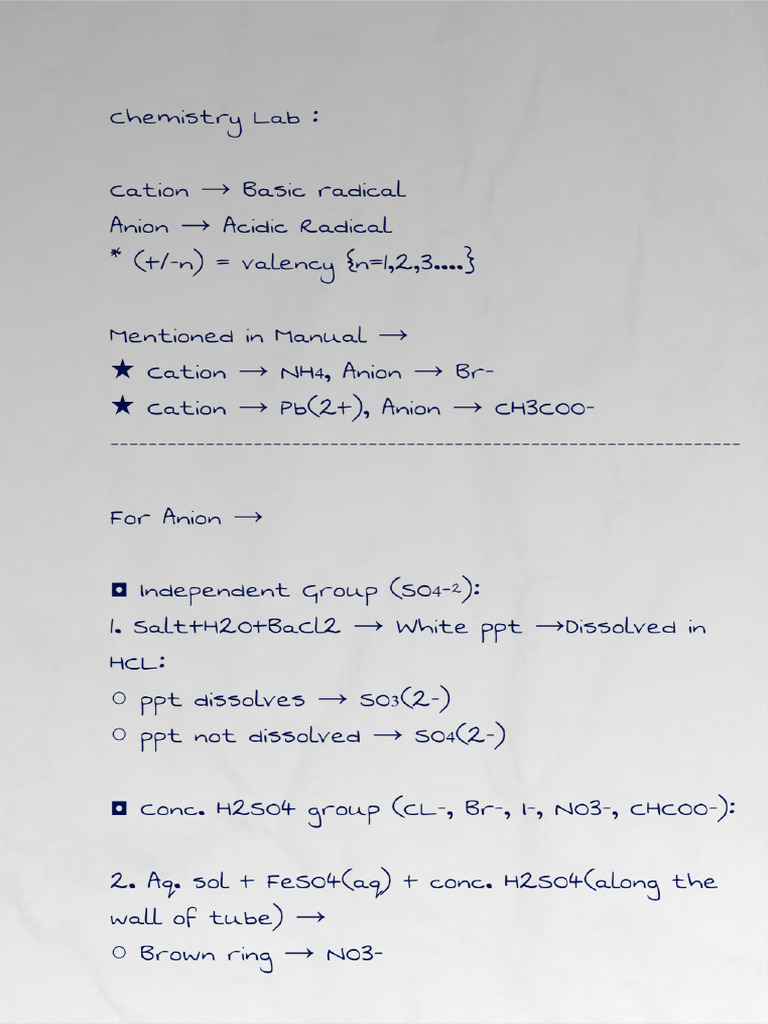 Chemistry Lab :
Cation → Basic radical
Anion → Acidic Radical
* (+/-n) = valency {n=1,2,3....}
Mentioned in Manual →
★ Cation → NH4, Anion → Br-
★ Cation → Pb(2+), Anion → CH3COO-
------------------------------------------------------------------
For Anion →
◘ Independent Group (SO4-²):
1. Salt+H2O+BaCl2 → White ppt →Dissolved in
HCL:
○ ppt dissolves → SO3(2-)
○ ppt not dissolved → SO4(2-)
◘ Conc. H2SO4 group (CL-, Br-, I-, NO3-, CHCOO-):
2. Aq. sol + FeSO4(aq) + conc. H2SO4(along the
wall of tube) →
○ Brown ring → NO3-